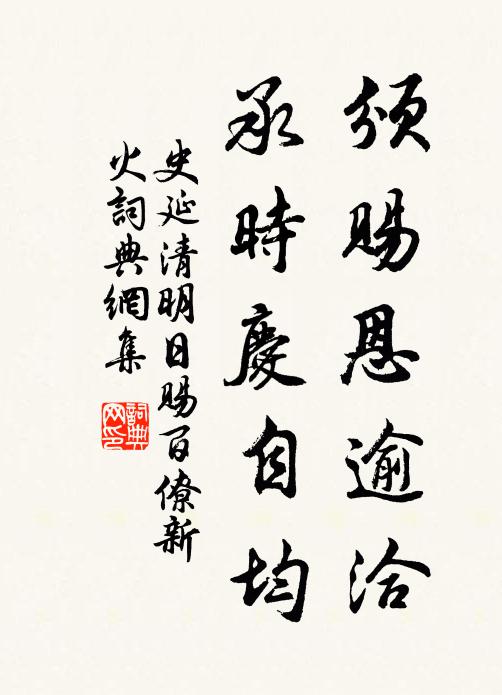 頒賜恩逾洽
承時慶自均
史延清明日賜百僚新
火詞典網集
詞典网印